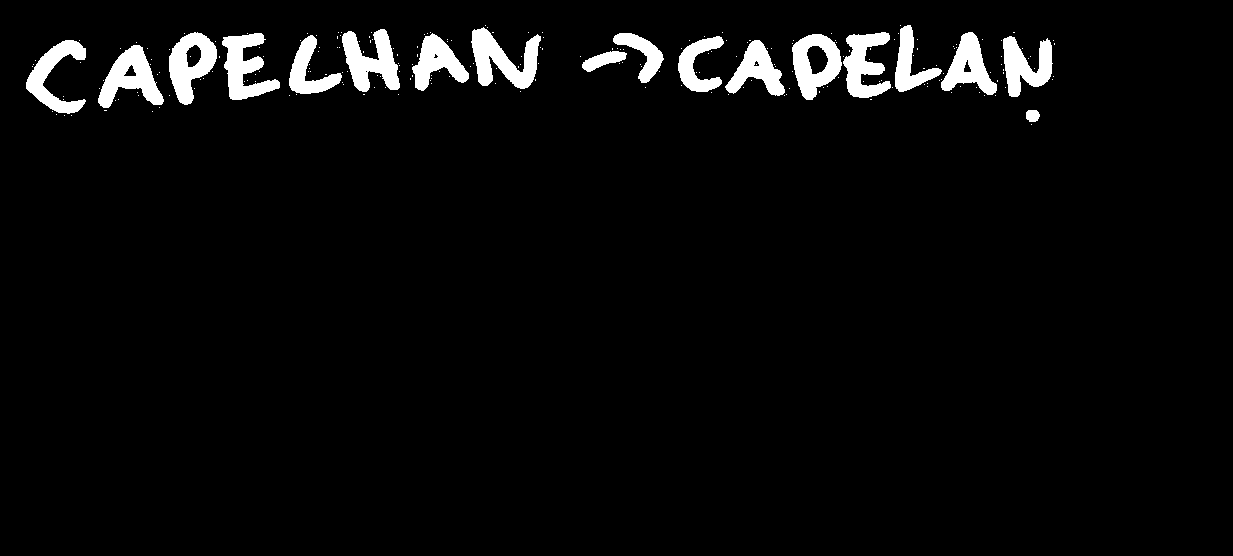 CAPELHAN → CAPELAN.